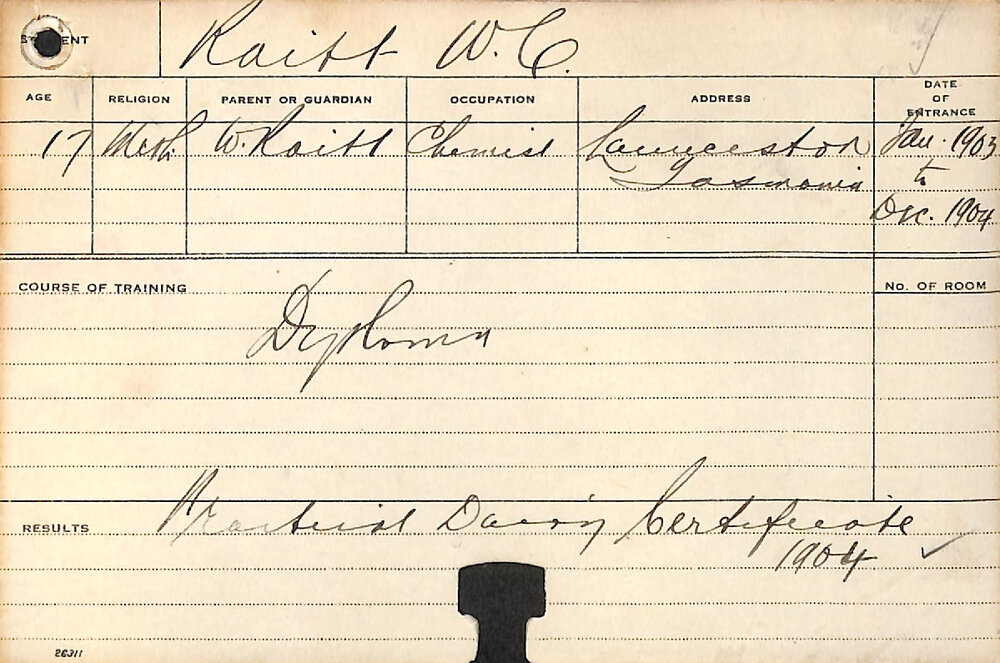 STUDENT Raitt W.C.
AGE RELIGION PARENT OR GUARDIAN OCCUPATION ADDRESS DATE OF ENTRANCE
17 Meth. W. Raitt Chemist Launceston Jan. 1903
Tasmania to
Dec. 1904
COURSE OF TRAINING No. OF ROOM
Diploma
RESULTS Practical Dairy Certificate
1904 ✓
26311